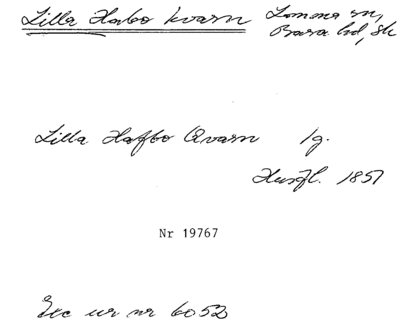 Lilla Habo kvarn Lomma sn,
Bara hd, Sk
Lilla Hafbo Qvarn 1g.
Husfl. 1857
Nr 19767
Exc ur nr 6052